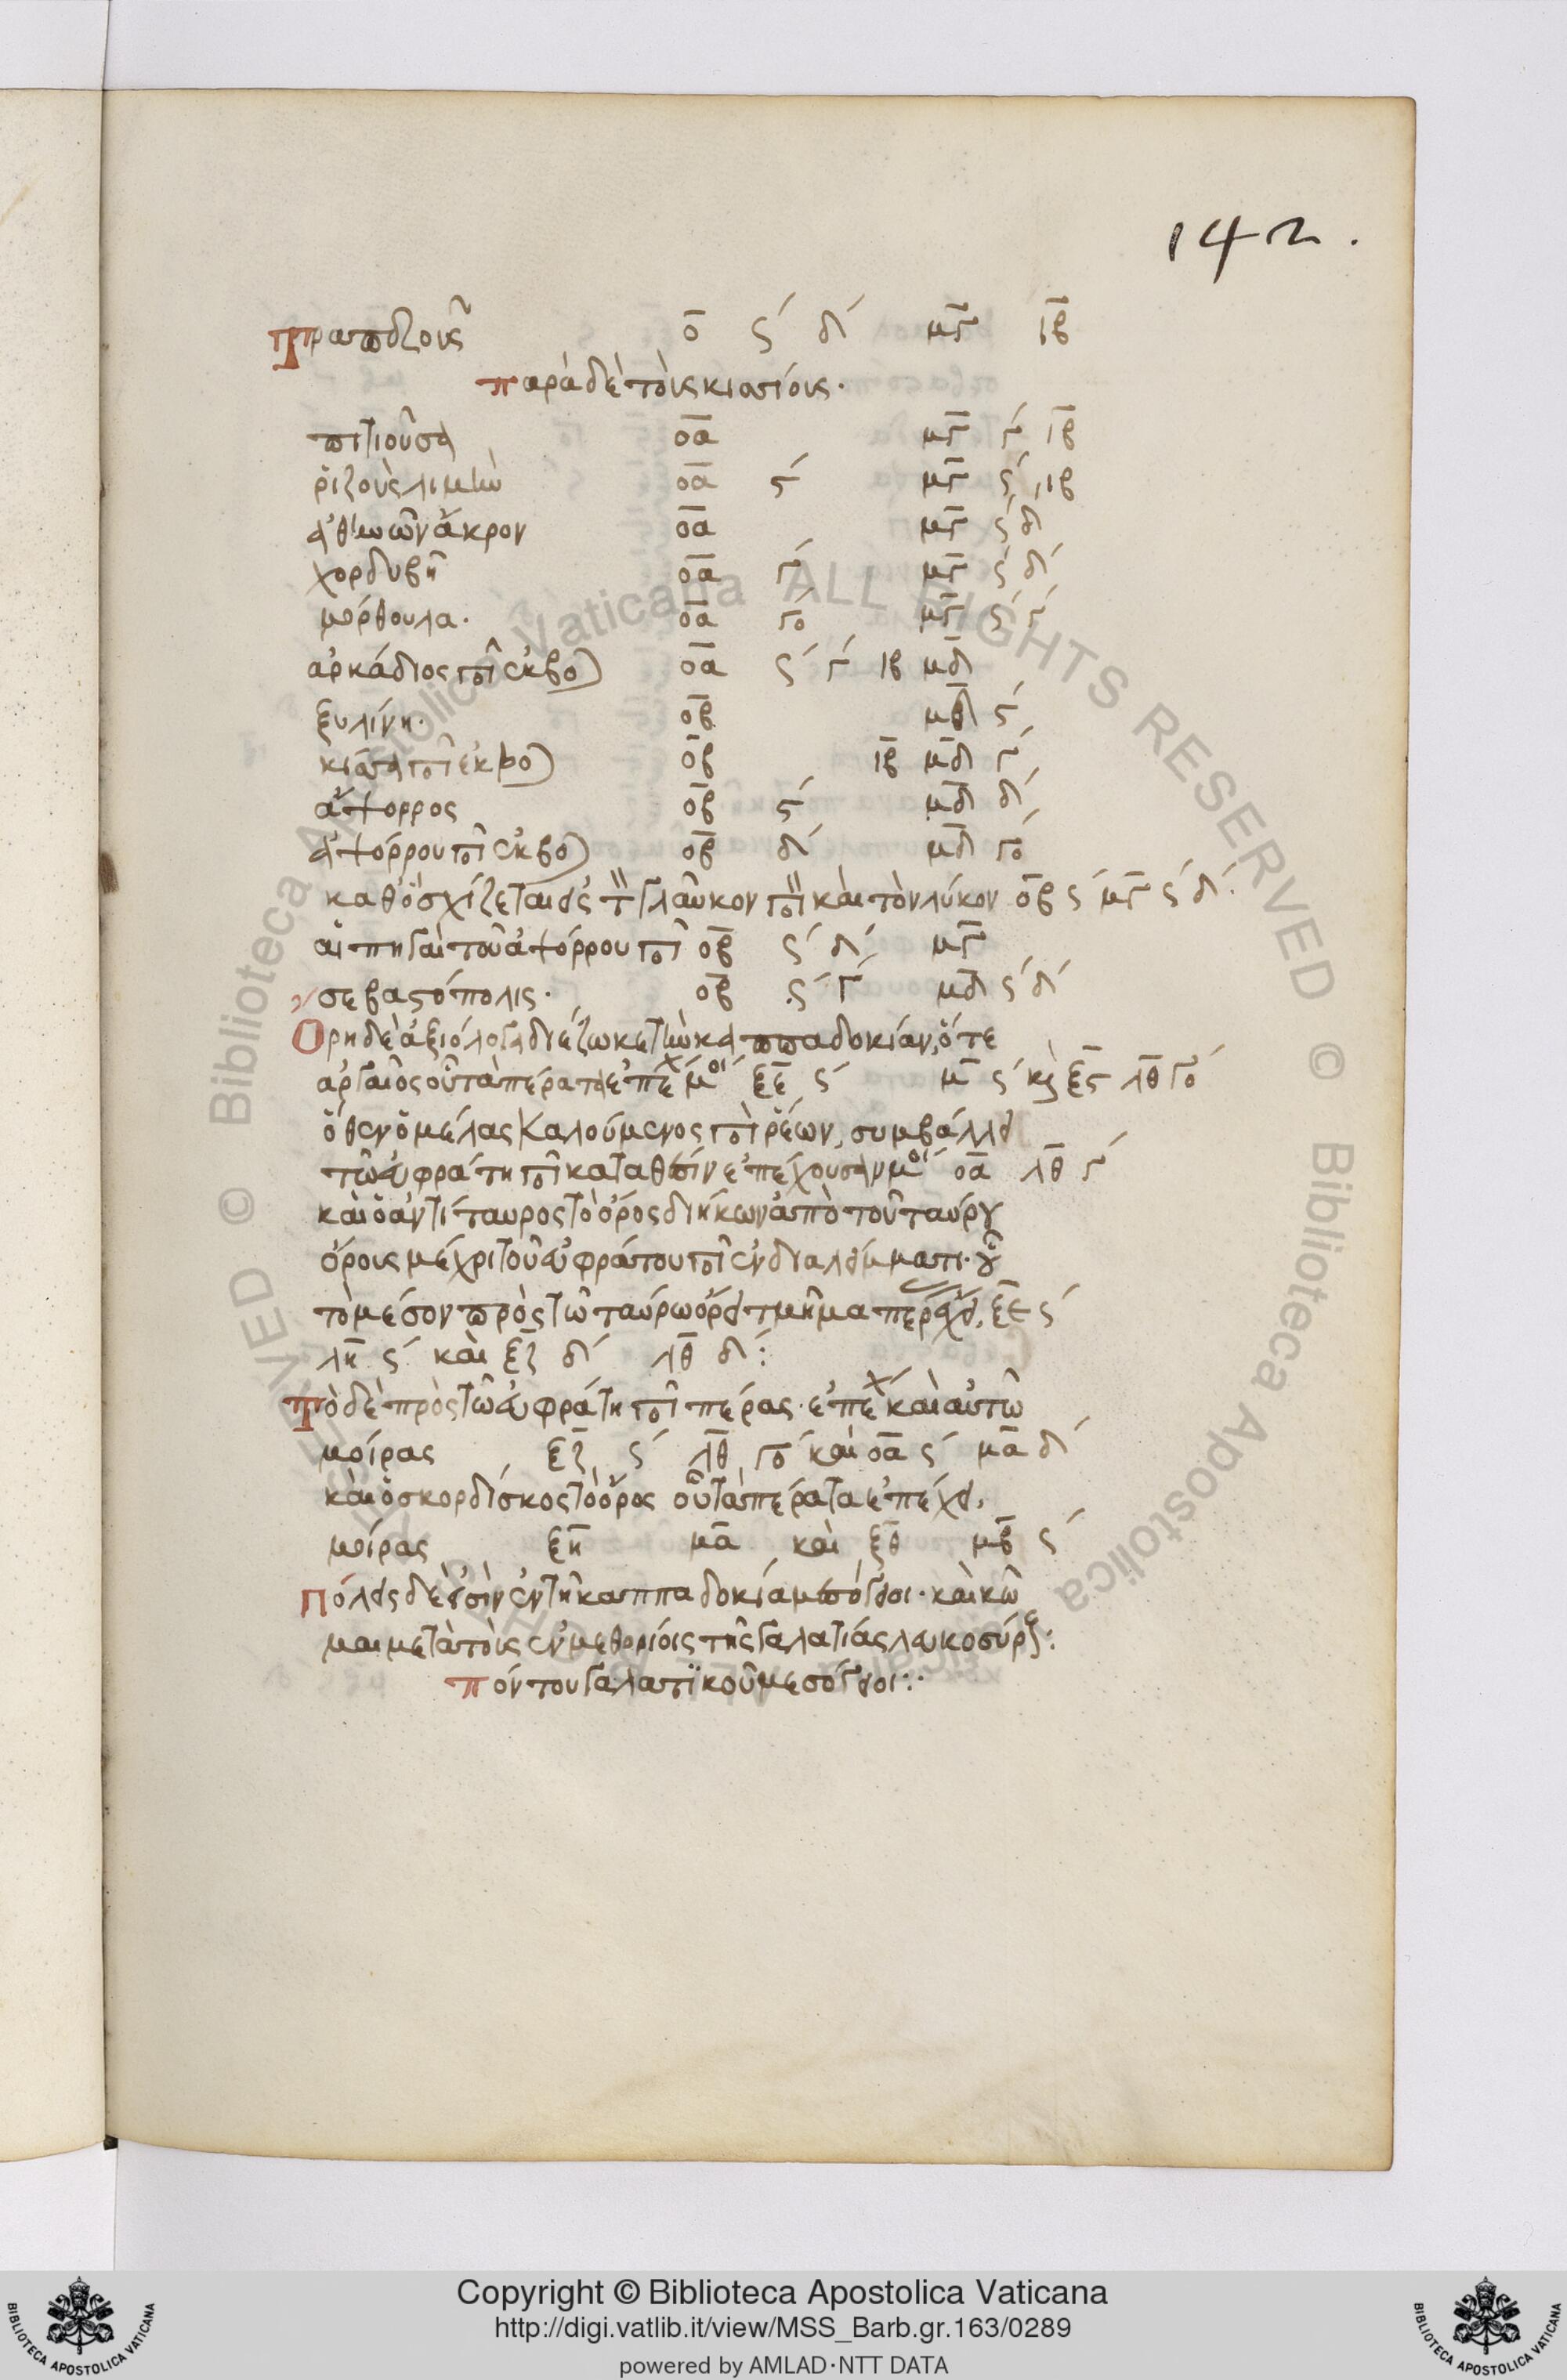 142.
τραπεζοῦς ο̅ ϛ´ δ´ μ̅γ̅ ι̅β̅
παρὰ δὲ τοῖς κισσίοις·
πιτιοῦσα ο̅α̅ μ̅γ̅ γ´ ι̅β̅
ῥιζοὺς λιμὴν ο̅α̅ ϛ´ μ̅γ̅ ϛ´ ιβ
ἀθηνῶν ἄκρον ο̅α̅ μ̅γ̅ ϛ´ δ
χορδυβῆ ο̅α̅ γ´ μ̅γ̅ ϛ´ δ´
μόρθουλα· ο̅α̅ γο´ μ̅γ̅ ϛ´ γ´
ἀρκάδιος ποτ ἐκβο) ο̅α̅ ϛ´ γ´ ιβ μ̅δ̅
ξυλίνη· ο̅β̅ μ̅δ̅ ϛ´
κίσσα ποτ ἐκβο) ο̅β̅ ι̅β̅ μ̅δ̅ γ´
ἄψορρος ο̅β̅ ϛ´ μ̅δ̅ δ´
ἀψόρρου ποτ ἐκβο) ο̅β̅ δ´ μ̅δ̅ γο´
καθ ὃ σχίζεται εἰς τ γλαῦκον ποτ καὶ τὸν λύκον ο̅β̅ ϛ´ μ̅γ̅ ϛ´ δ´·
αἱ πηγαὶ τοῦ ἀψόρρου ποτ ο̅β̅ ϛ´ δ´ μ̅γ̅
σεβαστόπολις· ο̅β̅ ϛ´ γ´ μ̅δ̅ ϛ´ δ´
Ορη δὲ ἀξιόλογα διέζωκε τὴν καππαδοκίαν, ὅ τε
ἀργαῖος οὗ τὰ πέρατα ἐπέχ μοί ξ̅ε̅ ϛ´ μ̅ ϛ´ κ ξ̅ϛ̅ λ̅θ̅ γο´
ὅθεν ὁ μέλας καλούμενος ποτ ῥέων, συμβάλλει
τῷ εὐφράτῃ ποτ κατὰ θέσιν ἐπέχουσαν μοί ο̅α̅ λ̅θ̅ γ´
καὶ ὁ ἀντίταυρος τὸ ὄρος διήκων ἀπὸ τοῦ ταύρου
ὄρους μέχρι τοῦ εὐφράτου ποτ ἐν διαλείμματι· οὗ
τὸ μέσον πρὸς τῷ ταύρω ὄρει τμῆμα περιέχει, ξ̅ε̅ ϛ´
λ̅η̅ ϛ´ καὶ ξ̅ζ̅ δ´ λ̅θ̅ δ´:
τὸ δὲ πρὸς τῷ εὐφράτῃ ποτ πέρας· ἐπέχ καὶ αὐτῶ
μοίρας ξ̅ζ̅ ϛ´ λ̅θ̅ γο´ καὶ ο̅α̅ ϛ´ μ̅α̅ δ´
καὶ ὁ σκορδίσκος τὸ ὄρος οὗ τὰ πέρατα ἐπέχει,
μοίρας ξ̅η̅ μ̅α̅ καὶ ξ̅θ̅ μ̅β̅ ϛ´
Πόλεις δὲ εἰσὶν ἐν τῇ καππαδοκία μεσόγειοι· καὶ κῶ
μαι μετὰ τοῖς ἐν μεθορίοις τῆς γαλατίας λευκοσύρ:
πόντου γαλατϊκοῦ μεσόγειοι:·
Copyright © Biblioteca Apostolica Vaticana
http://digi.vatlib.it/view/MSS_Barb.gr.163/0289
powered by AMLAD·NTT DATA